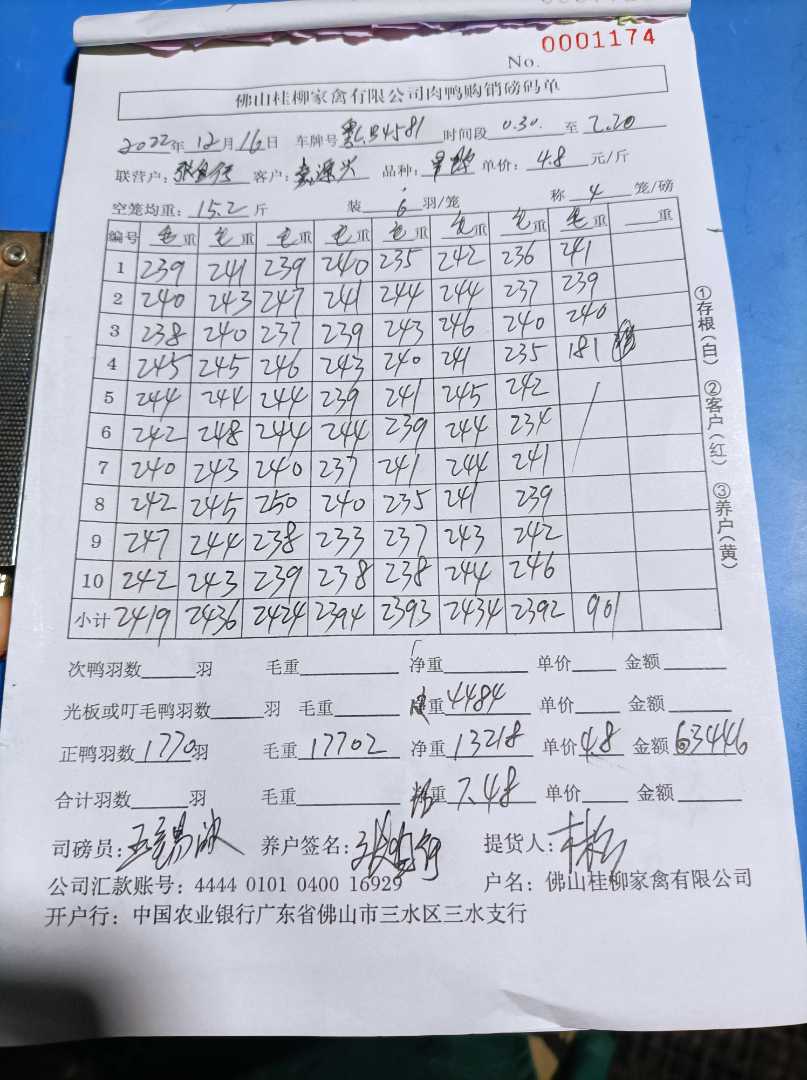 No. 0001174
佛山桂柳家禽有限公司肉鸭购销磅码单
2022年12月16日 车牌号 粤L.B4581 时间段 0.30. 至 2.20
联营户: 客户: 品种: 单价: 4.8 元/斤
空笼均重: 15.2 斤 装 6 羽/笼 称 4 笼/磅
编号 毛重 毛重 毛重 毛重 毛重 毛重 毛重 毛重 重
1 239 241 239 240 235 242 236 241
2 240 243 247 241 244 244 237 239
3 238 240 237 239 243 246 240 240
4 245 245 246 243 240 241 235 181
5 244 244 244 239 241 245 242
6 242 248 244 244 239 244 234
7 240 243 240 237 241 244 241
8 242 245 250 240 235 241 239
9 247 244 238 233 237 243 242
10 242 243 239 238 238 244 246
小计 2419 2436 2424 2394 2393 2434 2392 901
①存根(白) ②客户(红) ③养户(黄)
次鸭羽数 羽 毛重 净重 单价 金额
光板或叮毛鸭羽数 羽 毛重 重 4484 单价 金额
正鸭羽数 1770 羽 毛重 17702 净重 13218 单价 4.8 金额 63446
合计羽数 羽 毛重 重 7.48 单价 金额
司磅员: 养户签名: 提货人:
公司汇款账号: 4444 0101 0400 16929 户名: 佛山桂柳家禽有限公司
开户行: 中国农业银行广东省佛山市三水区三水支行